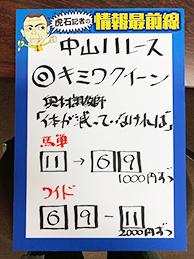 虎石記者の
情報最前線
中山11レース
◎キミワクイーン
奥村武調教師
「イキが減っていなければ」
馬単
11→6 9
1000円ずつ
ワイド
6 9-11
2000円ずつ